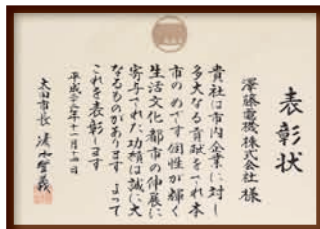 表彰状
澤藤電機株式会社様
貴社は市内企業に対し
多大なる貢献をされ本
市のめざす個性が輝く
生活文化都市の伸展に
寄与された功績は誠に大
なるものがあります よって
これを表彰します
平成二十九年十一月十四日
太田市長 清水聖義